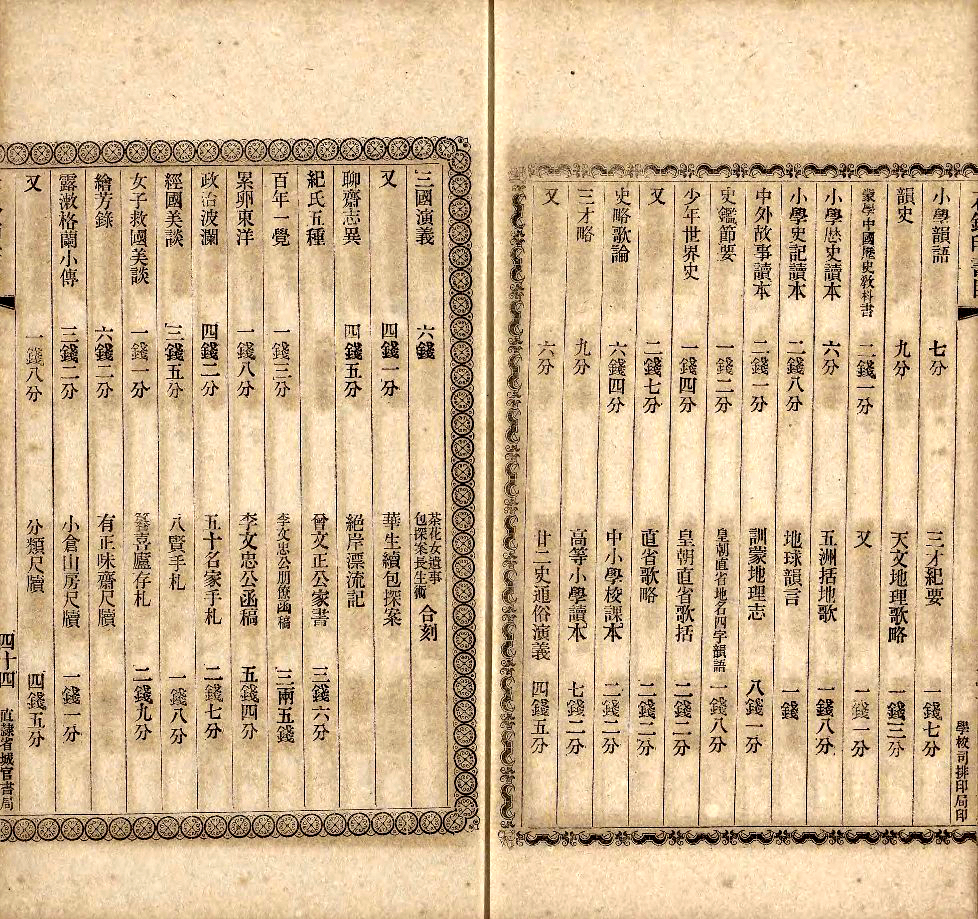 學校司排印局印
小學韻語　七分　三才紀要　一錢七分
韻史　九分　天文地理歌略　一錢三分
蒙學中國歷史教科書　二錢一分　又　一錢一分
小學歷史讀本　六分　五洲括地歌　一錢八分
小學史記讀本　二錢八分　地球韻言　一錢
中外故事讀本　二錢一分　訓蒙地理志　八錢一分
史鑑節要　一錢二分　皇朝直省地名四字韻語　一錢八分
少年世界史　一錢四分　皇朝直省歌括　二錢二分
又　二錢七分　直省歌略　二錢二分
史略歌論　六錢四分　中小學校課本　二錢二分
三才略　九分　高等小學讀本　七錢二分
又　六分　廿二史通俗演義　四錢五分
三國演義　六錢　茶花女遺事　包探案長生術　合刻
又　四錢一分　華生續包探案
聊齋志異　四錢五分　絕岸漂流記
紀氏五種　曾文正公家書　三錢六分
百年一覺　一錢三分　李文忠公朋僚函稿　三兩五錢
累卵東洋　一錢八分　李文忠公函稿　五錢四分
政治波瀾　四錢二分　五十名家手札　二錢七分
經國美談　三錢五分　八賢手札　一錢八分
女子救國美談　一錢一分　喜廬存札　二錢九分
繪芳錄　六錢二分　有正味齋尺牘
露漱格蘭小傳　三錢二分　小倉山房尺牘　一錢一分
又　一錢八分　分類尺牘　四錢五分
四十四　直隸省城官書局